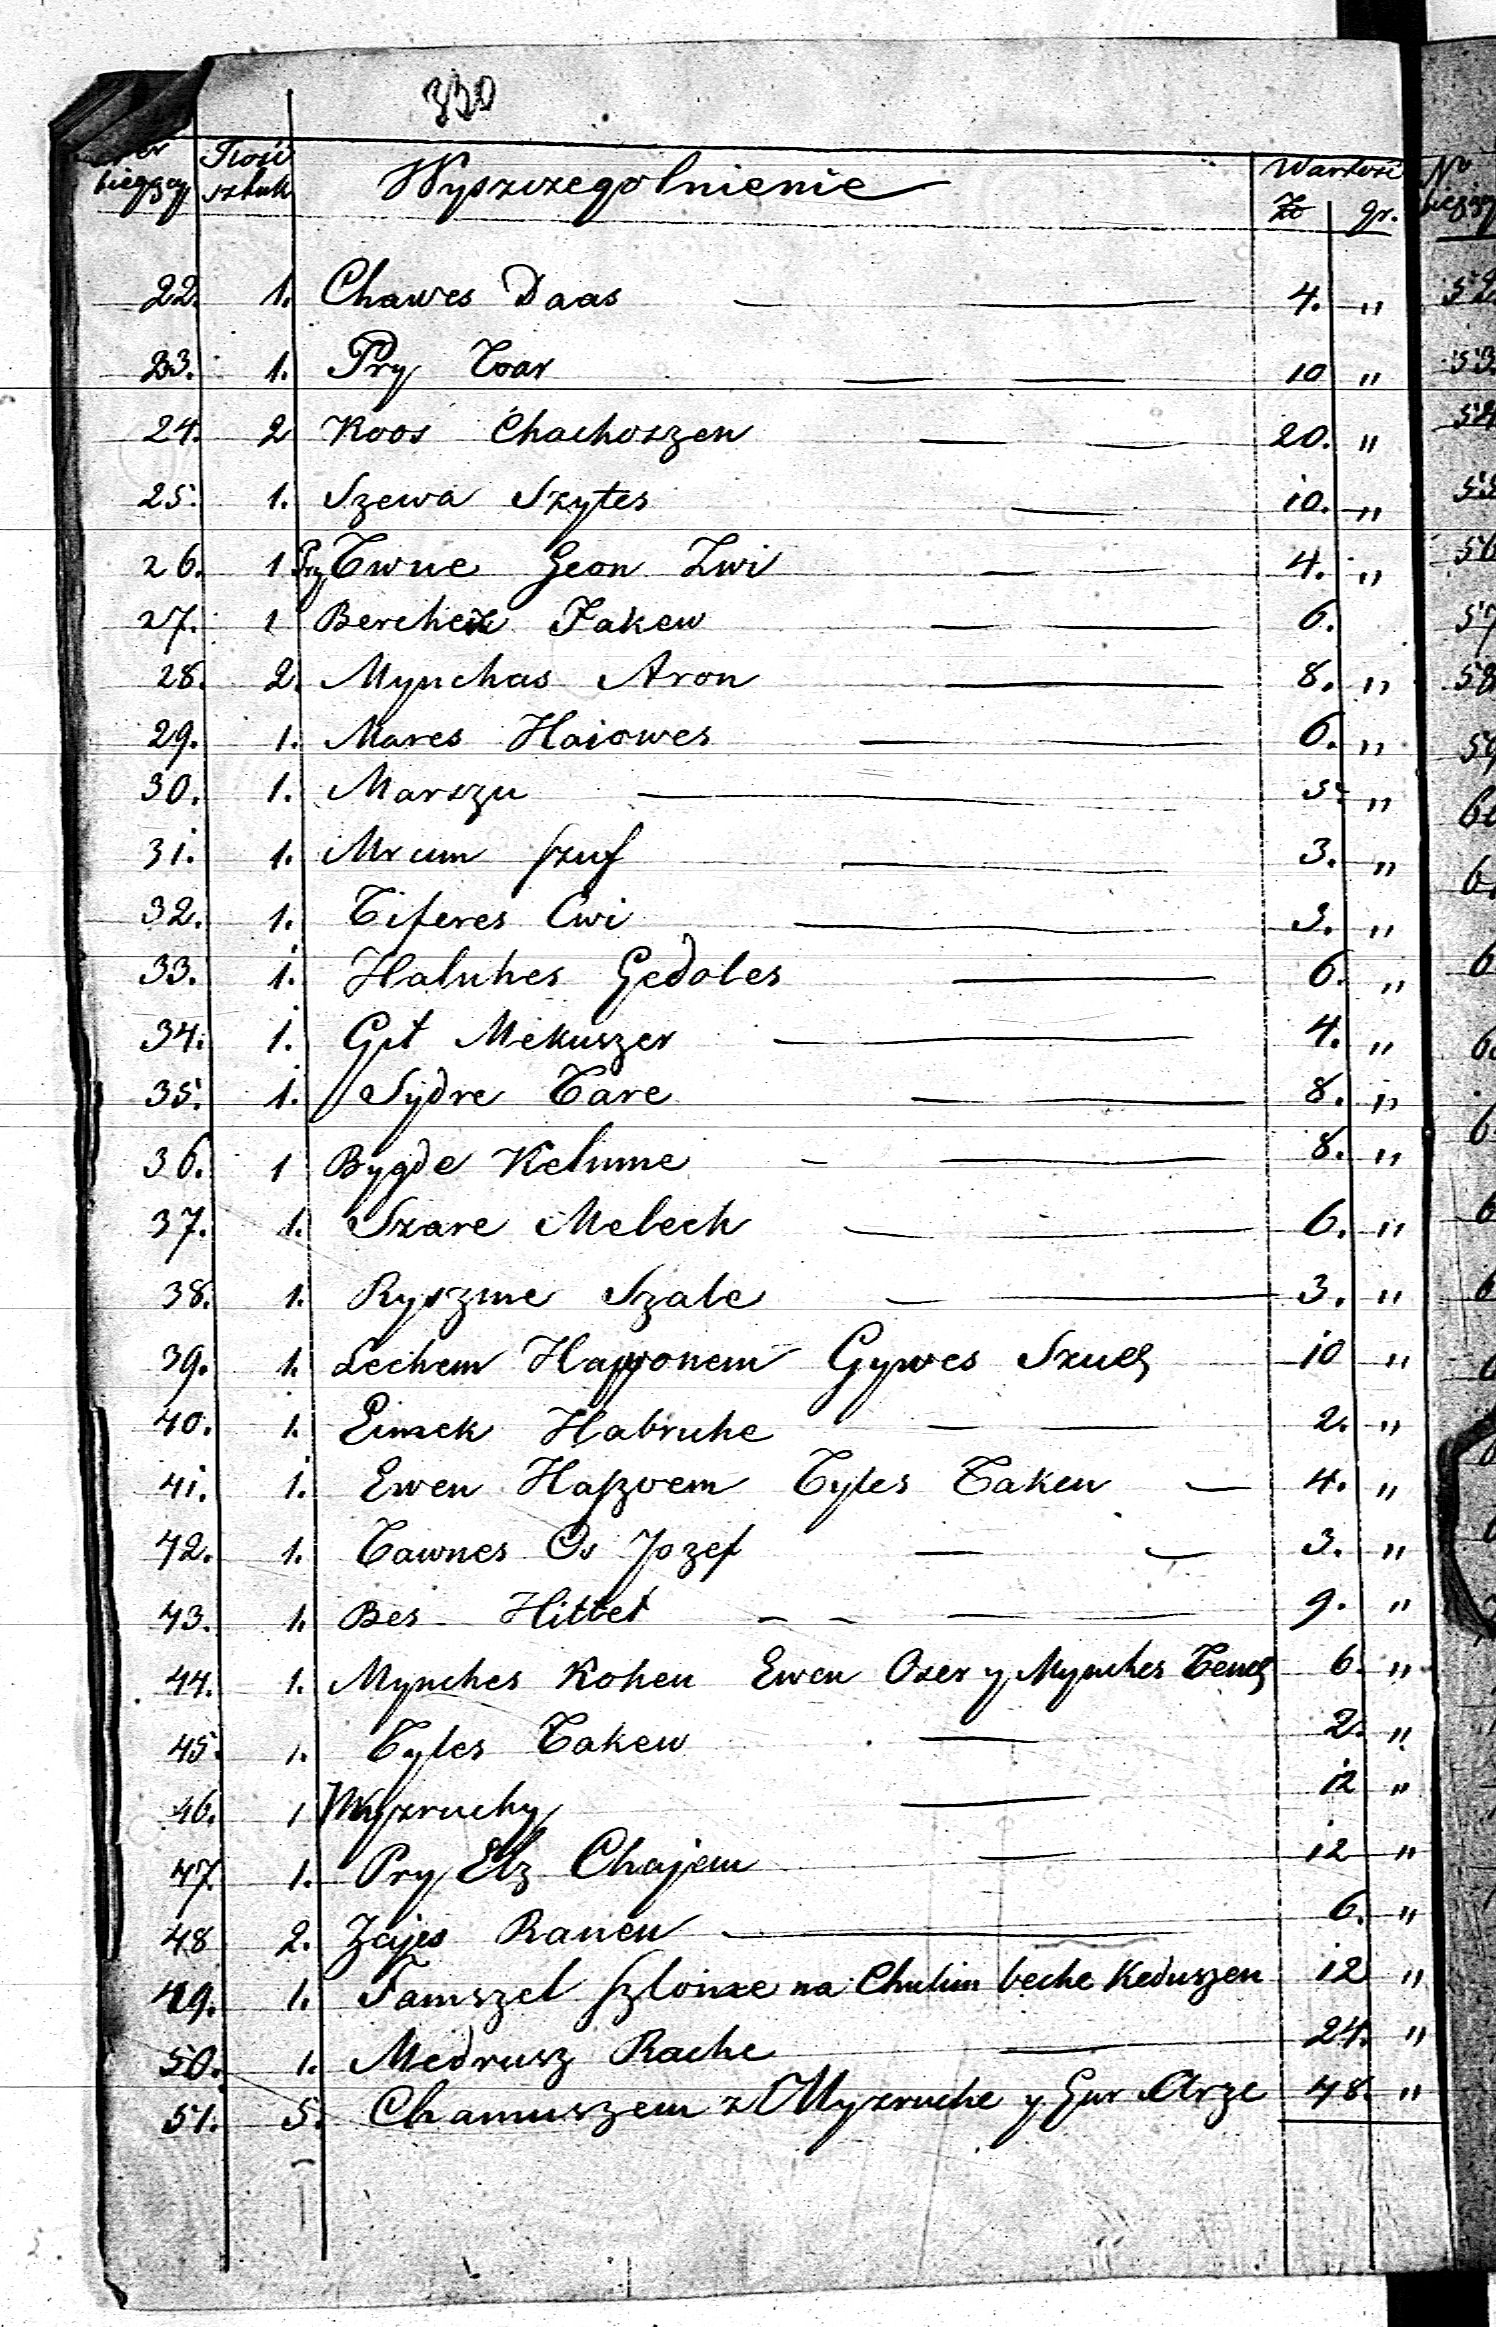 330
bieżący Ilość sztuk Wyszczegolnienie Wartość
Zł gr.
22. 1. Chawes Daas 4. "
23. 1. Pry Toar 10 "
24. 2 Koos Chachoszen 20. "
25. 1. Szewa Szytes 10. "
26. 1 Pry Twue Geon Zwi 4. "
27. 1 Berchez Jakew 6.
28. 2. Mynchas Aron 8. "
29. 1. Mares Haiowes 6. "
30. 1. Marszu 5. "
31. 1. Mrcum szuf 3. "
32. 1. Tiferes Cwi 3. "
33. 1. Haluhes Gedoles 6. "
34. 1. Git Mekuszer 4. "
35. 1. Sydre Tare 8. "
36. 1 Bygde Kehune 8. "
37. 1. Szare Melech 6. "
38. 1. Ryszme Szale 3. "
39. 1. Lechem Happonem Gywes Szueł 10 "
40. 1. Eimek Habruhe 2. "
41. 1. Ewen Haszoem Tyles Taken 4. "
42. 1. Tawnes Os Jozef 3. "
43. 1. Bes Hittel 9. "
44. 1. Mynches Kohen Ewen Oser y Mynches 6. "
45. 1. Tyles Takew 2. "
46. 1 Myzruchy 12 "
47. 1. Pry Etz Chajem 12 "
48 2. Zejes Ranen 6. "
49. 1. Tamszel szloize na Chulim beche Keduszen 12 "
50. 1. Medrusz Rache 24. "
51. 5. Chamuszem z Myzruche y Gur Arze 48. "